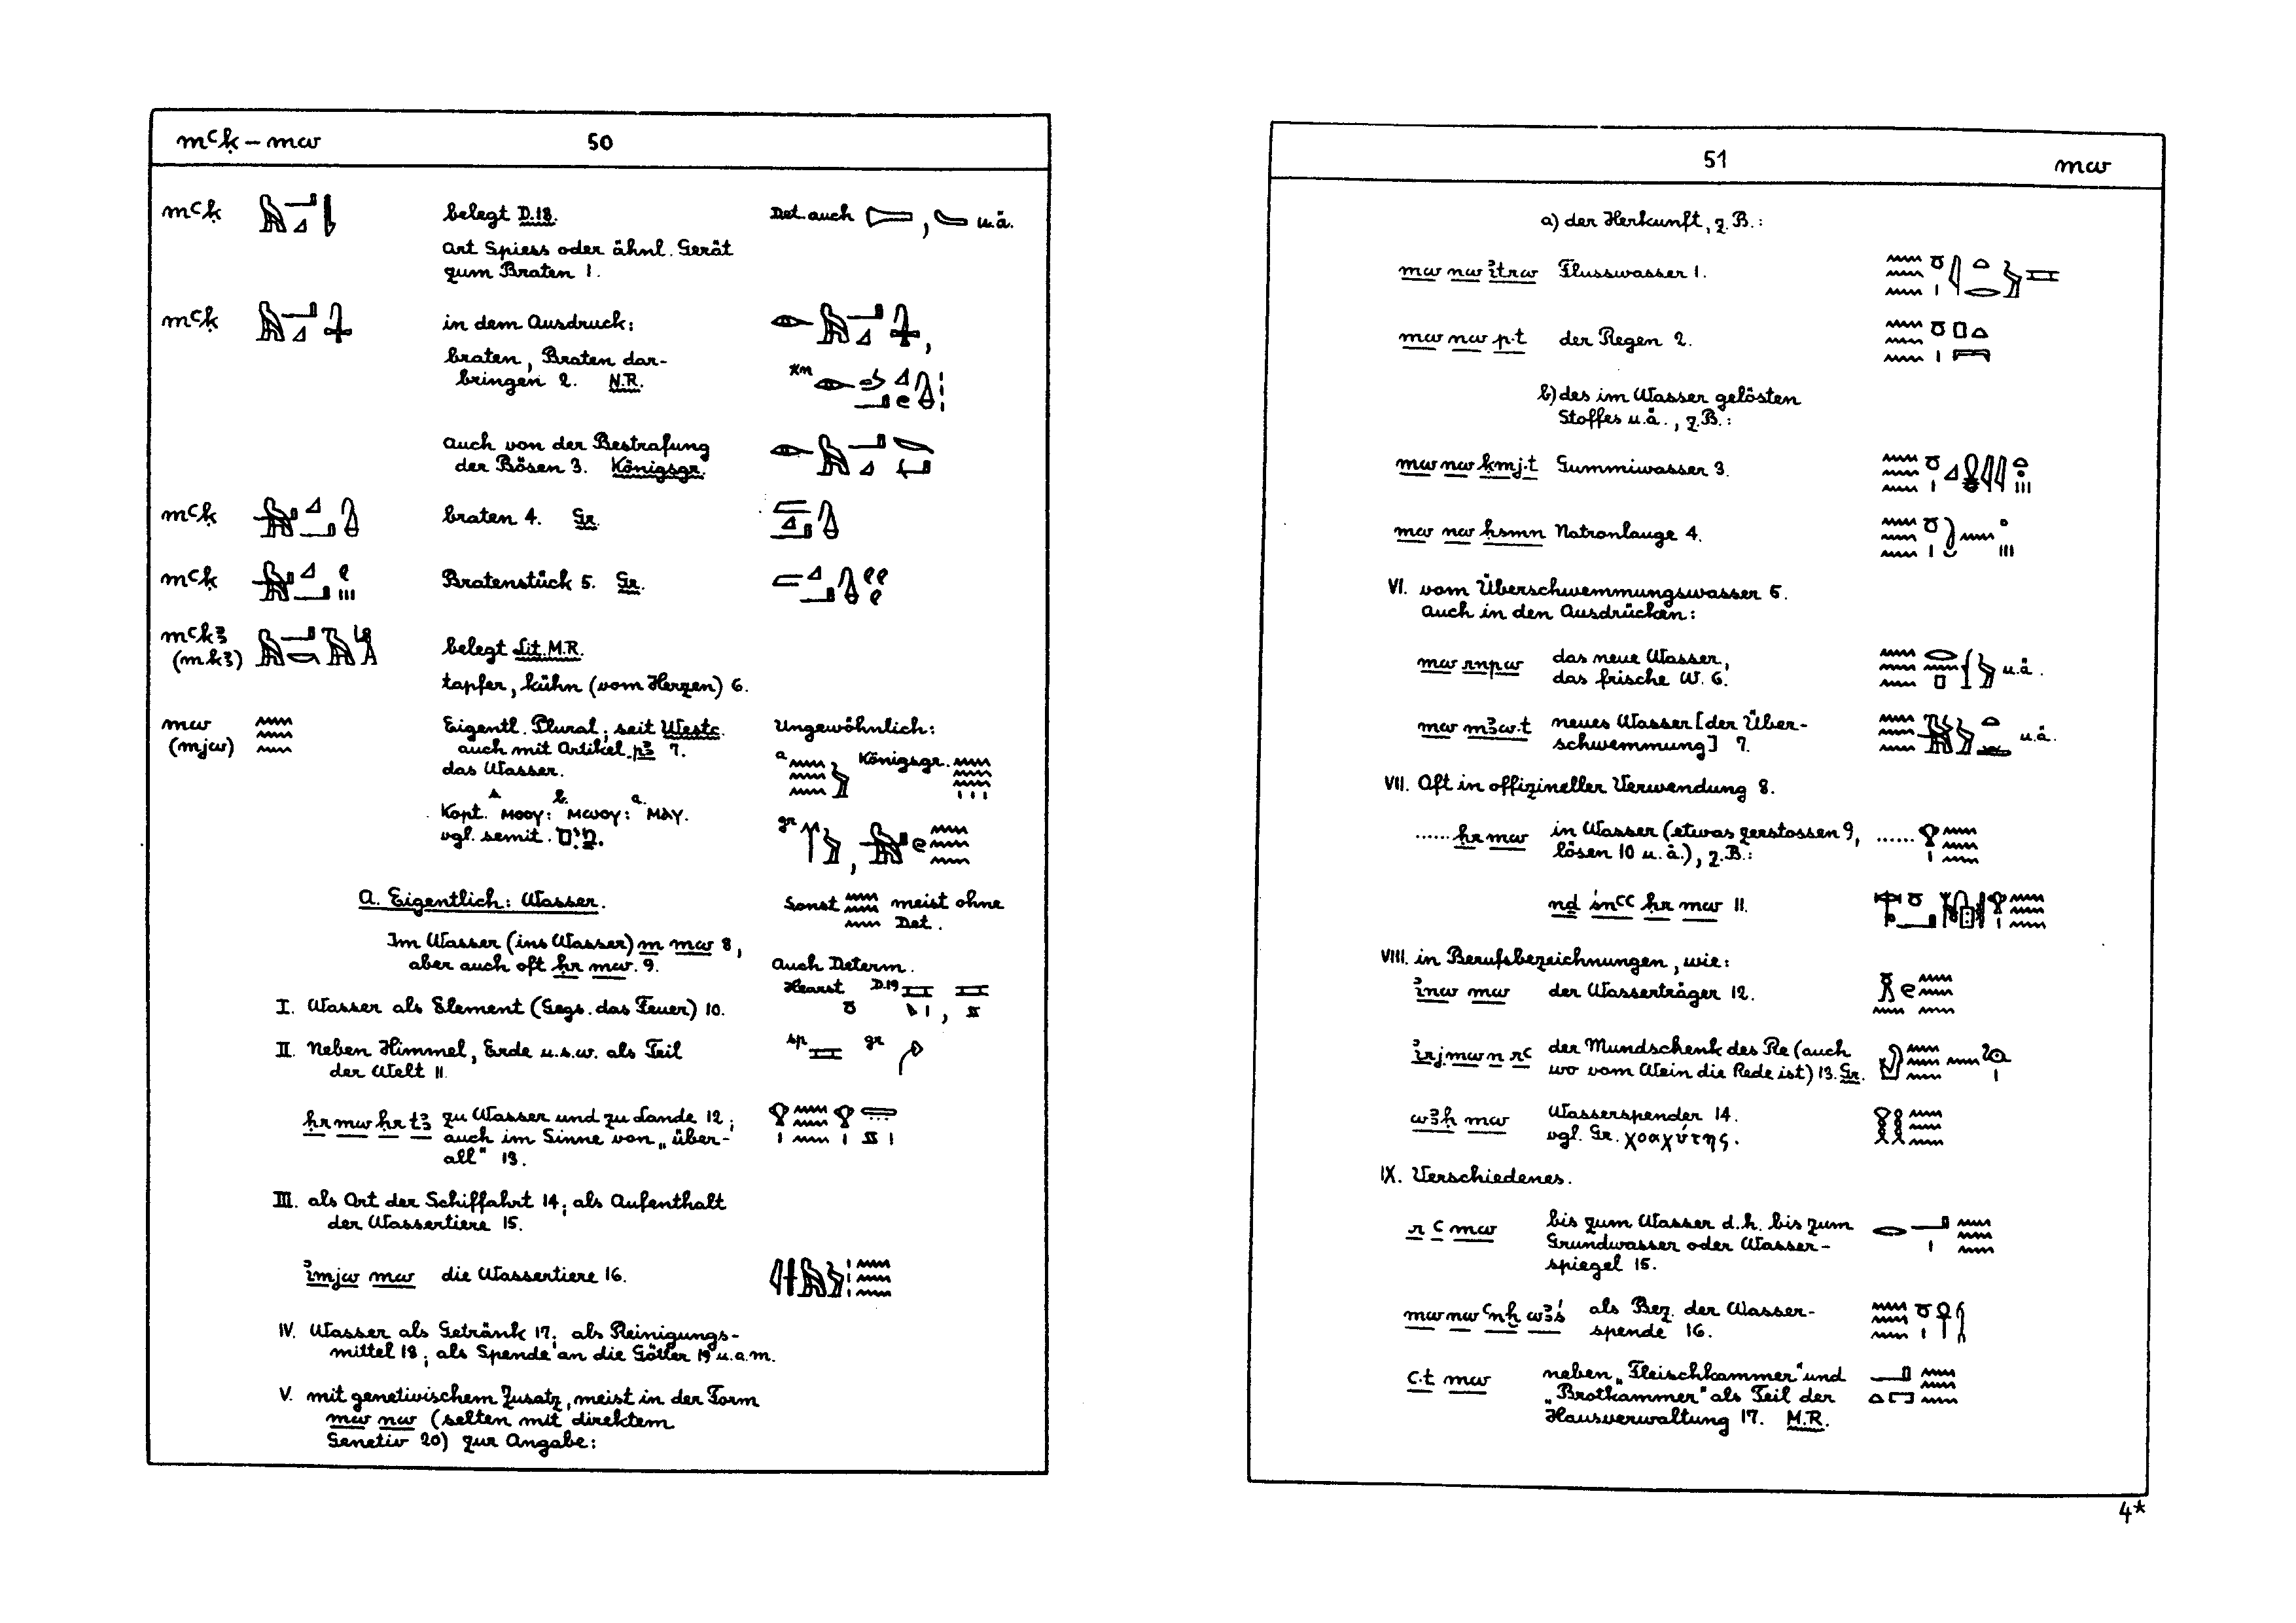 mꜥḳ – mw 50
mꜥḳ belegt D.18. Det. auch , u.ä.
Art Spiess oder ähnl. Gerät
zum Braten 1.
mꜥḳ in dem Ausdruck:
braten, Braten dar-
bringen 2. N.R.
auch von der Bestrafung
der Bösen 3. Königsgr.
mꜥḳ braten 4. Gr.
mꜥḳ Bratenstück 5. Gr.
mꜥkꜣ
(mkꜣ) belegt Lit. M.R.
tapfer, kühn (vom Herzen) 6.
mw Eigentl. Plural; seit Westc. Ungewöhnlich:
(mjw) auch mit Artikel pꜣ 7.
das Wasser. a Königsgr.
Kopt. ᴬ ⲙⲟⲟⲩ: ᵇ ⲙⲱⲟⲩ: ᵃ ⲙⲁⲩ. gr
vgl. semit. מַיִם.
A. Eigentlich: Wasser. Sonst meist ohne
Det.
Im Wasser (ins Wasser) m mw 8,
aber auch oft ḥr mw 9. Auch Determ.
Hearst D.19
I. Wasser als Element (Gegs. das Feuer) 10.
II. Neben Himmel, Erde u.s.w. als Teil sp gr
der Welt 11.
ḥr mw ḥr tꜣ zu Wasser und zu Lande 12;
auch im Sinne von „über-
all" 13.
III. als Ort der Schiffahrt 14; als Aufenthalt
der Wassertiere 15.
ἰmjw mw die Wassertiere 16.
IV. Wasser als Getränk 17; als Reinigungs-
mittel 18; als Spende an die Götter 19 u.a.m.
V. mit genetivischem Zusatz, meist in der Form
mw nw (selten mit direktem
Genetiv 20) zur Angabe:
51 mw
a) der Herkunft, z.B.:
mw nw ἰtrw Flusswasser 1.
mw nw p.t der Regen 2.
b) des im Wasser gelösten
Stoffes u.ä., z.B.:
mw nw ḳmj.t Gummiwasser 3.
mw nw ḥsmn Natronlauge 4.
VI. vom Überschwemmungswasser 5.
auch in den Ausdrücken:
mw rnpw das neue Wasser,
das frische W. 6. u.ä.
mw mꜣw.t neues Wasser [der Über-
schwemmung] 7. u.ä.
VII. Oft in offizineller Verwendung 8.
...... ḥr mw in Wasser (etwas zerstossen 9, ......
lösen 10 u.ä.), z.B.:
nḏ śnꜥꜥ ḥr mw 11.
VIII. in Berufsbezeichnungen, wie:
ἰnw mw der Wasserträger 12.
ἰrj mw n rꜥ der Mundschenk des Re (auch
wo vom Wein die Rede ist) 13. Gr.
wꜣḥ mw Wasserspender 14.
vgl. Gr. χοαχύτης.
IX. Verschiedenes.
r ꜥ mw bis zum Wasser d.h. bis zum
Grundwasser oder Wasser-
spiegel 15.
mw nw ꜥnḫ wꜣś als Bez. der Wasser-
spende 16.
ꜥ.t mw neben „Fleischkammer" und
„Brotkammer" als Teil der
Hausverwaltung 17. M.R.
4*